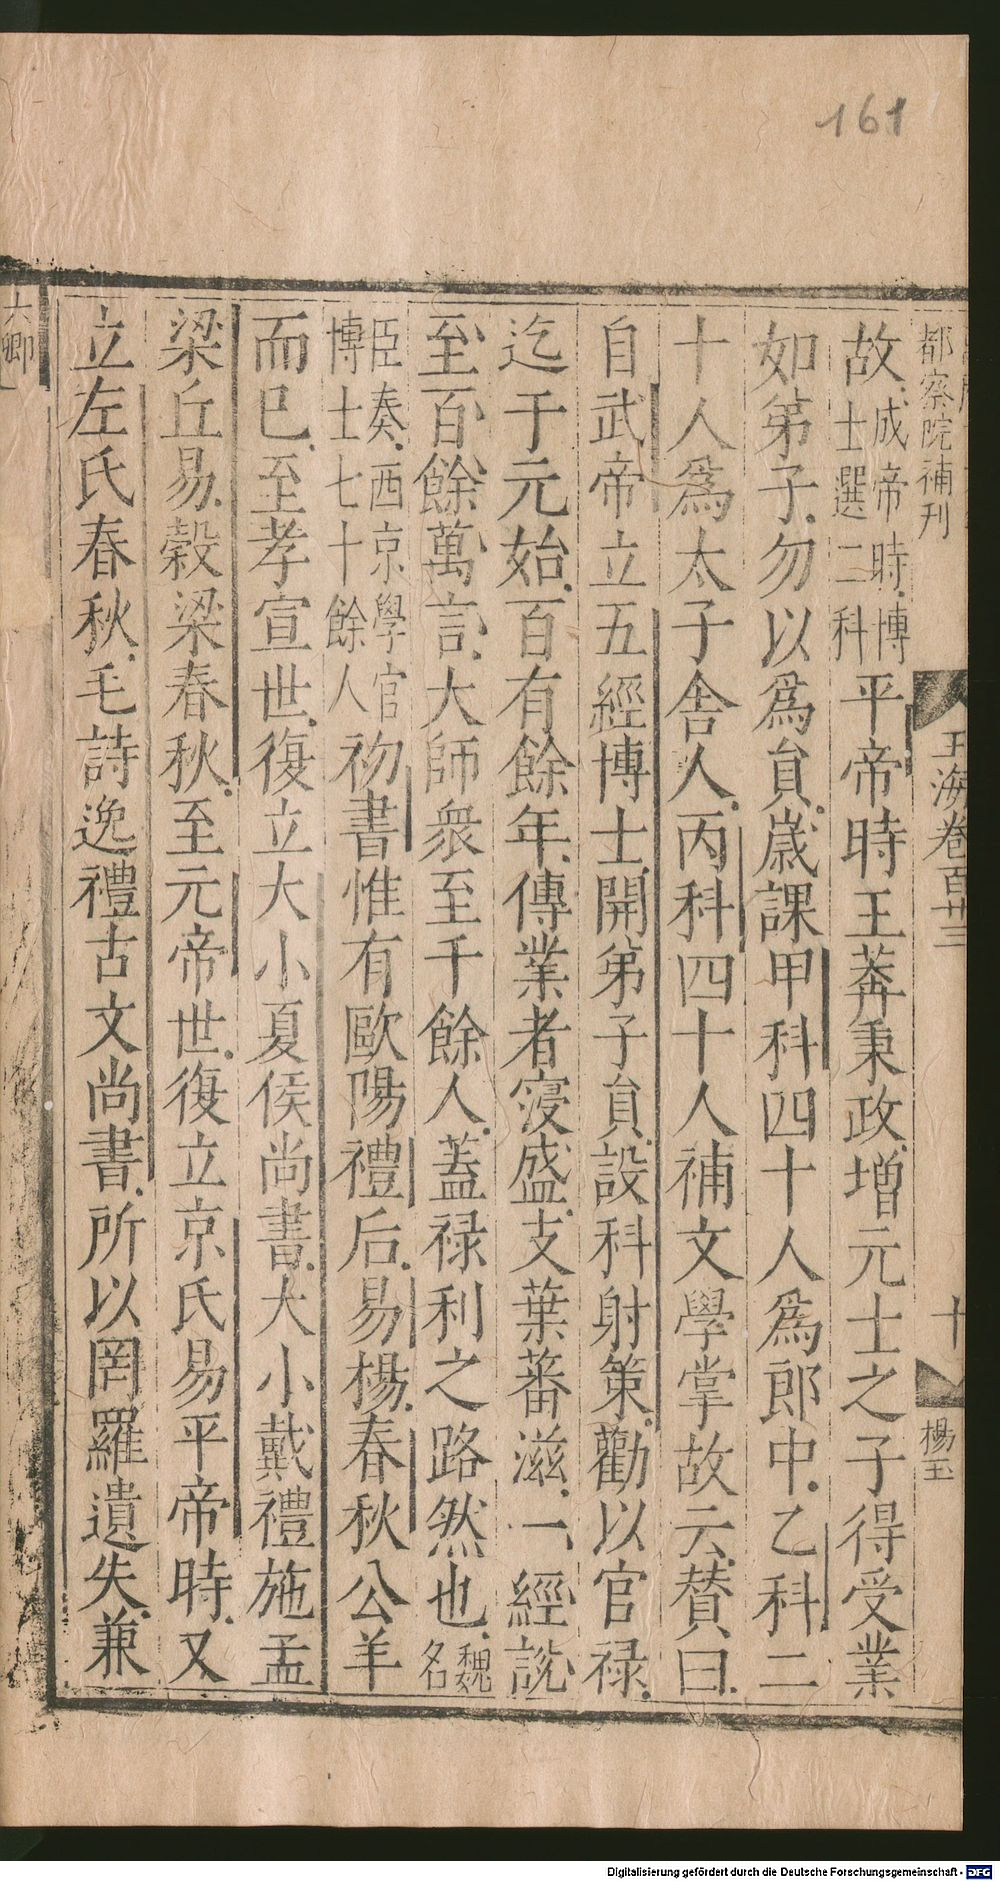 161
都察院補刊
玉海卷百廿三
十
楊玉
故成帝時博士選二科平帝時王莽秉政增元士之子得受業
如弟子勿以爲員歲課甲科四十人爲郎中乙科二
十人爲太子舍人丙科四十人補文學掌故云賛曰
自武帝立五經博士開弟子員設科射策勸以官禄
迄于元始百有餘年傳業者寖盛支葉蕃滋一經說
至百餘萬言大師衆至千餘人蓋禄利之路然也魏名
臣奏西京學官博士七十餘人初書惟有歐陽禮后易楊春秋公羊
而已至孝宣世復立大小夏侯尚書大小戴禮施孟
梁丘易穀梁春秋至元帝世復立京氏易平帝時又
立左氏春秋毛詩逸禮古文尚書所以罔羅遺失兼
六卿
Digitalisierung gefördert durch die Deutsche Forschungsgemeinschaft - DFG